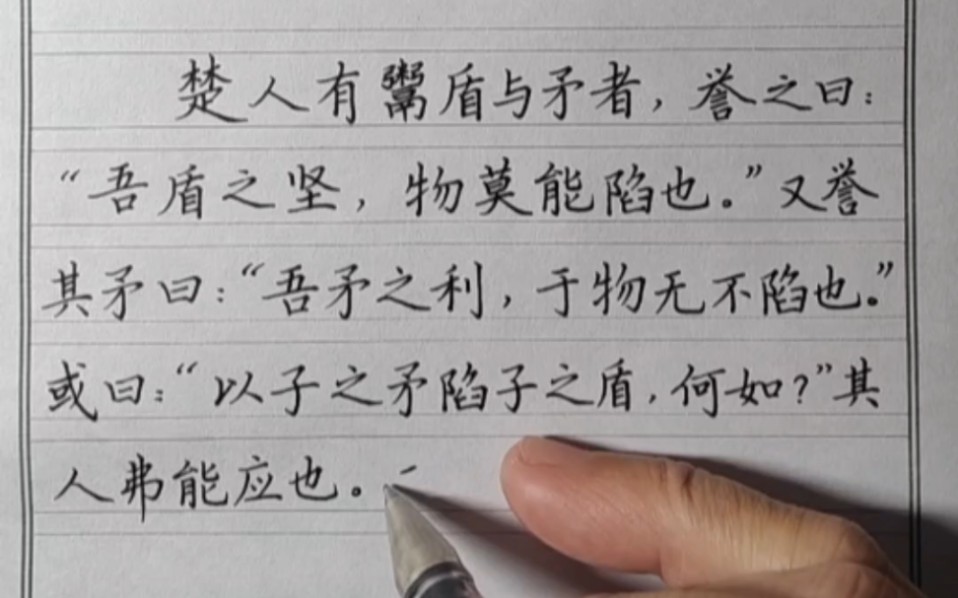 楚人有鬻盾与矛者，誉之曰：
“吾盾之坚，物莫能陷也。”又誉
其矛曰：“吾矛之利，于物无不陷也。”
或曰：“以子之矛陷子之盾，何如？”其
人弗能应也。